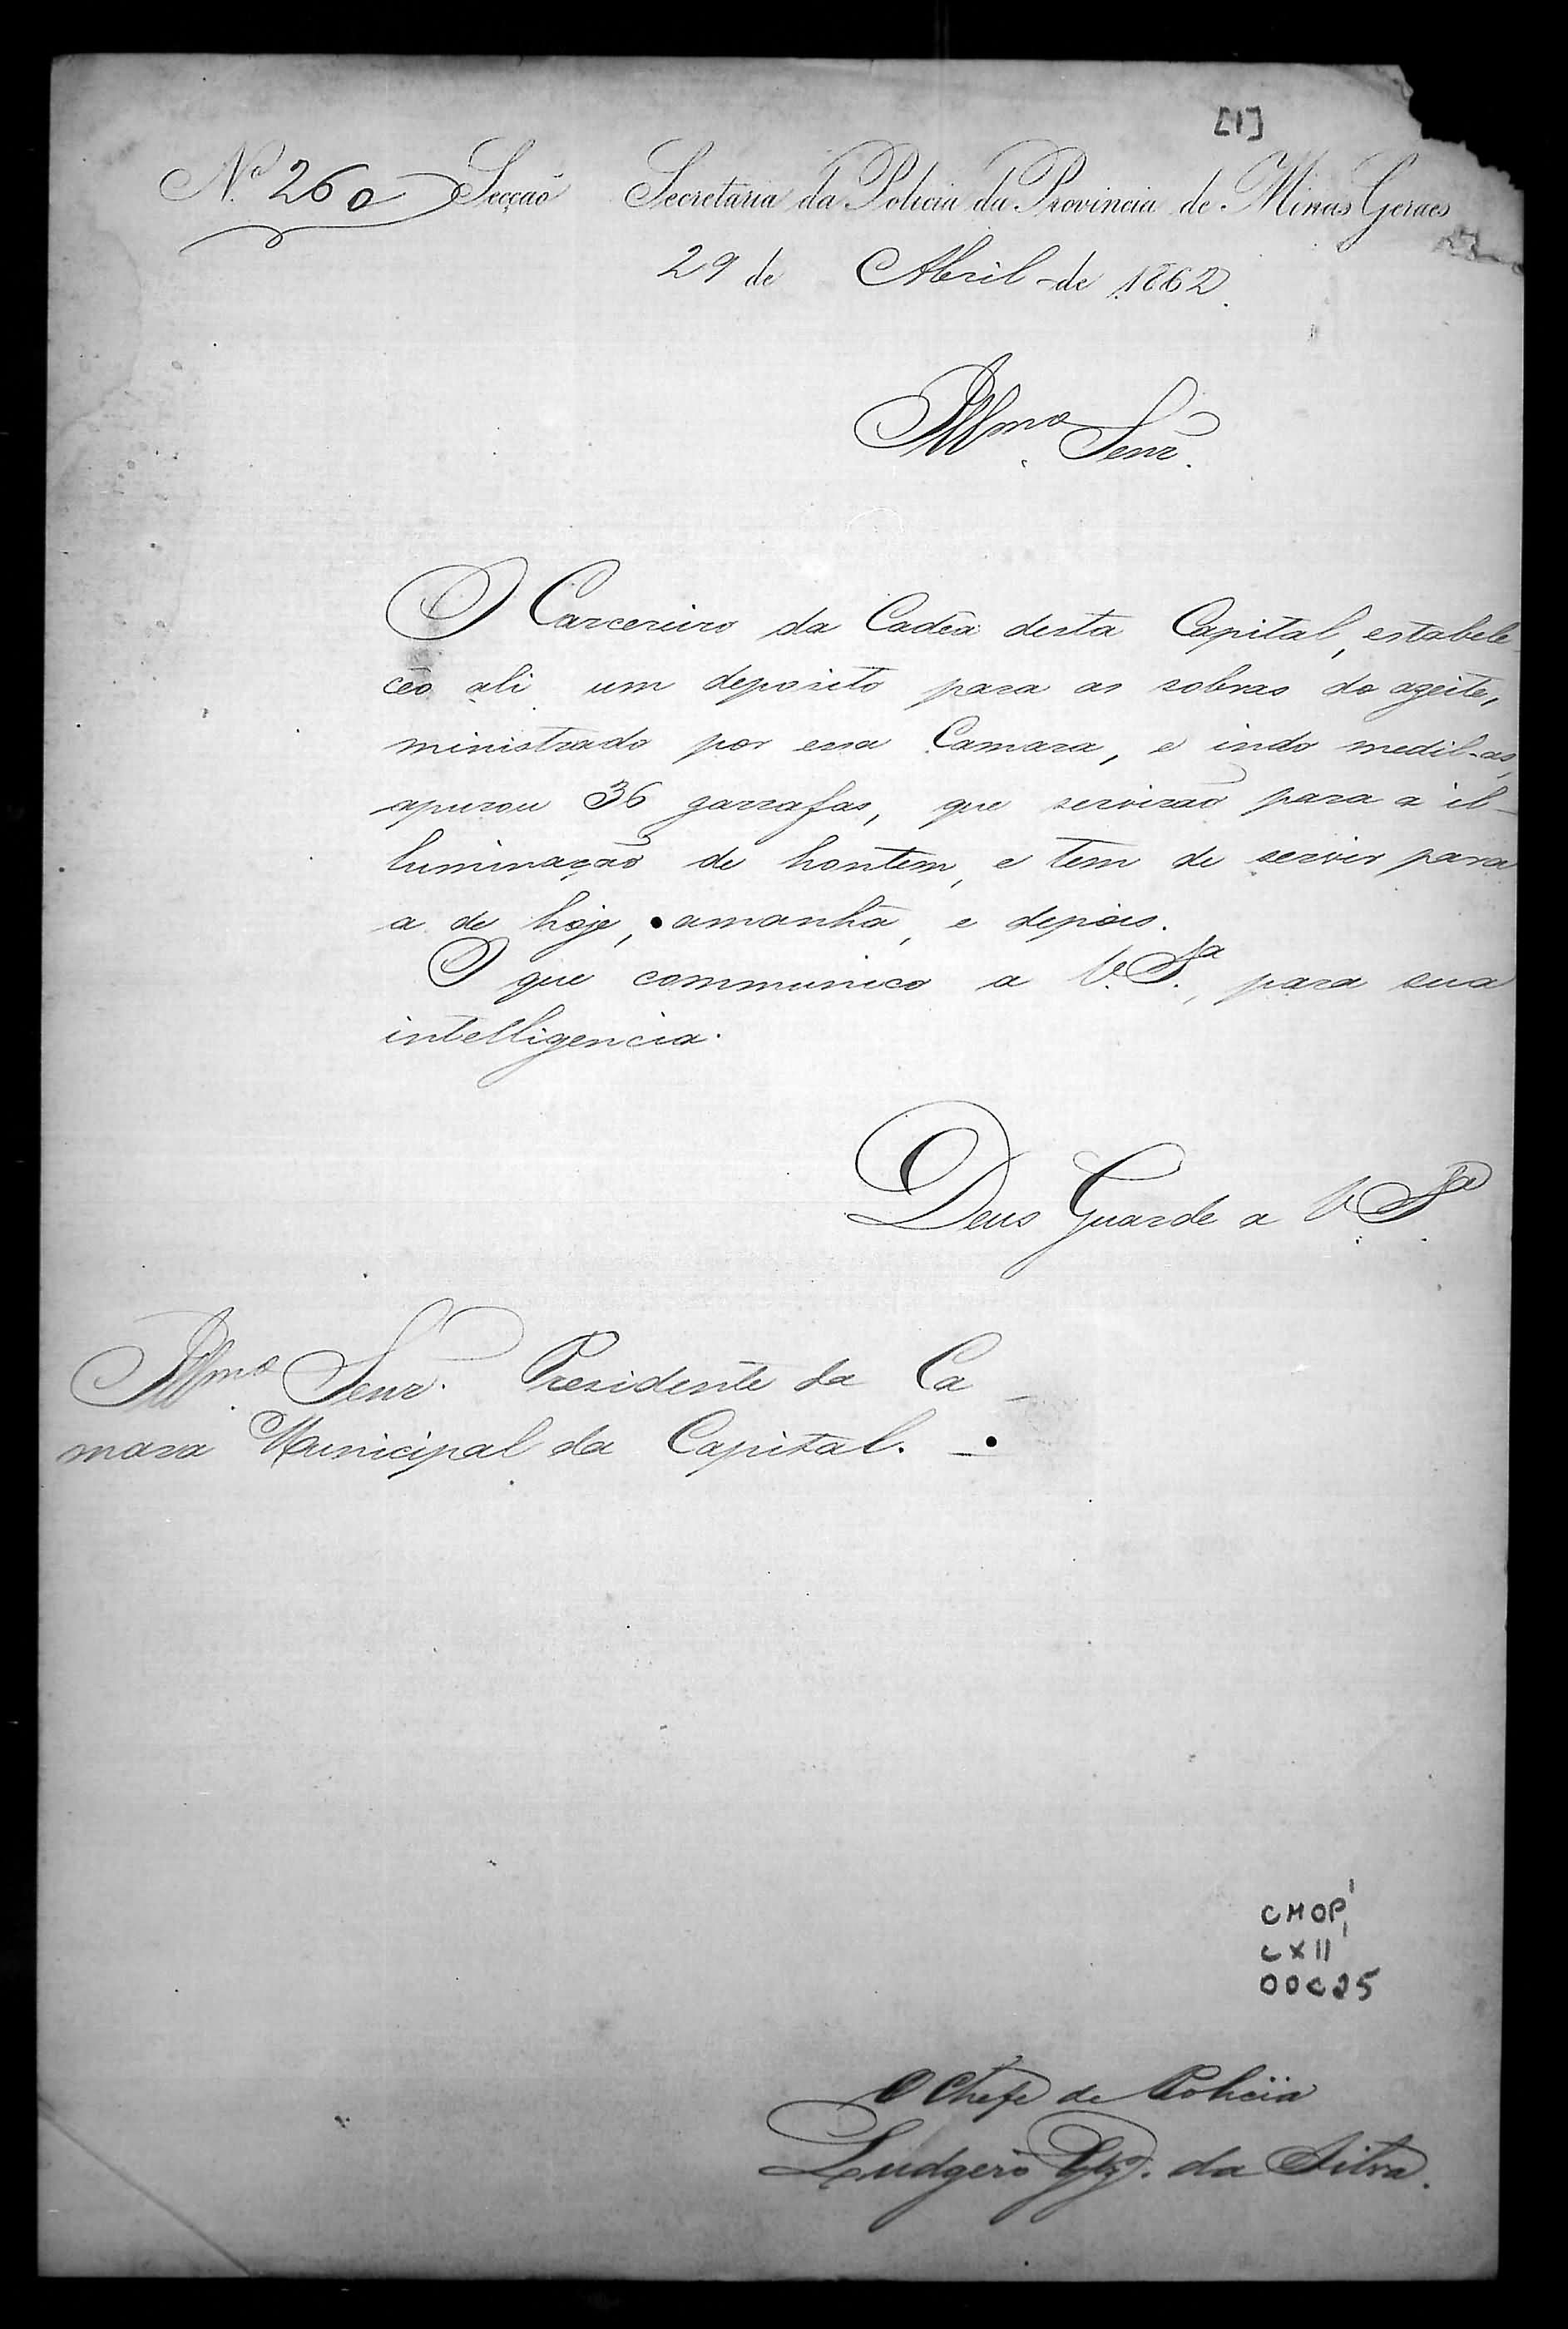 [1]
Nº 260 Secção Secretaria da Policia da Provincia de Minas Geraes
29 de Abril de 1862.
Illmº Senr.
O Carcereiro da Cadêa desta Capital, estabele-
ceo ali um deposito para as sobras do azeite,
ministrado por essa Camara, e indo medil-as,
apurou 36 garrafas, que servirão para a il-
luminação de hontem, e tem de servir para
a de hoje, amanhã, e depois.
O que communico a V. Sª, para sua
intelligencia.
Deus Guarde a V. Sª
Illmº Senr. Presidente da Ca-
mara Municipal da Capital.
CMOP
CXII
00025
O Chefe de Policia
Ludgero da Silva.